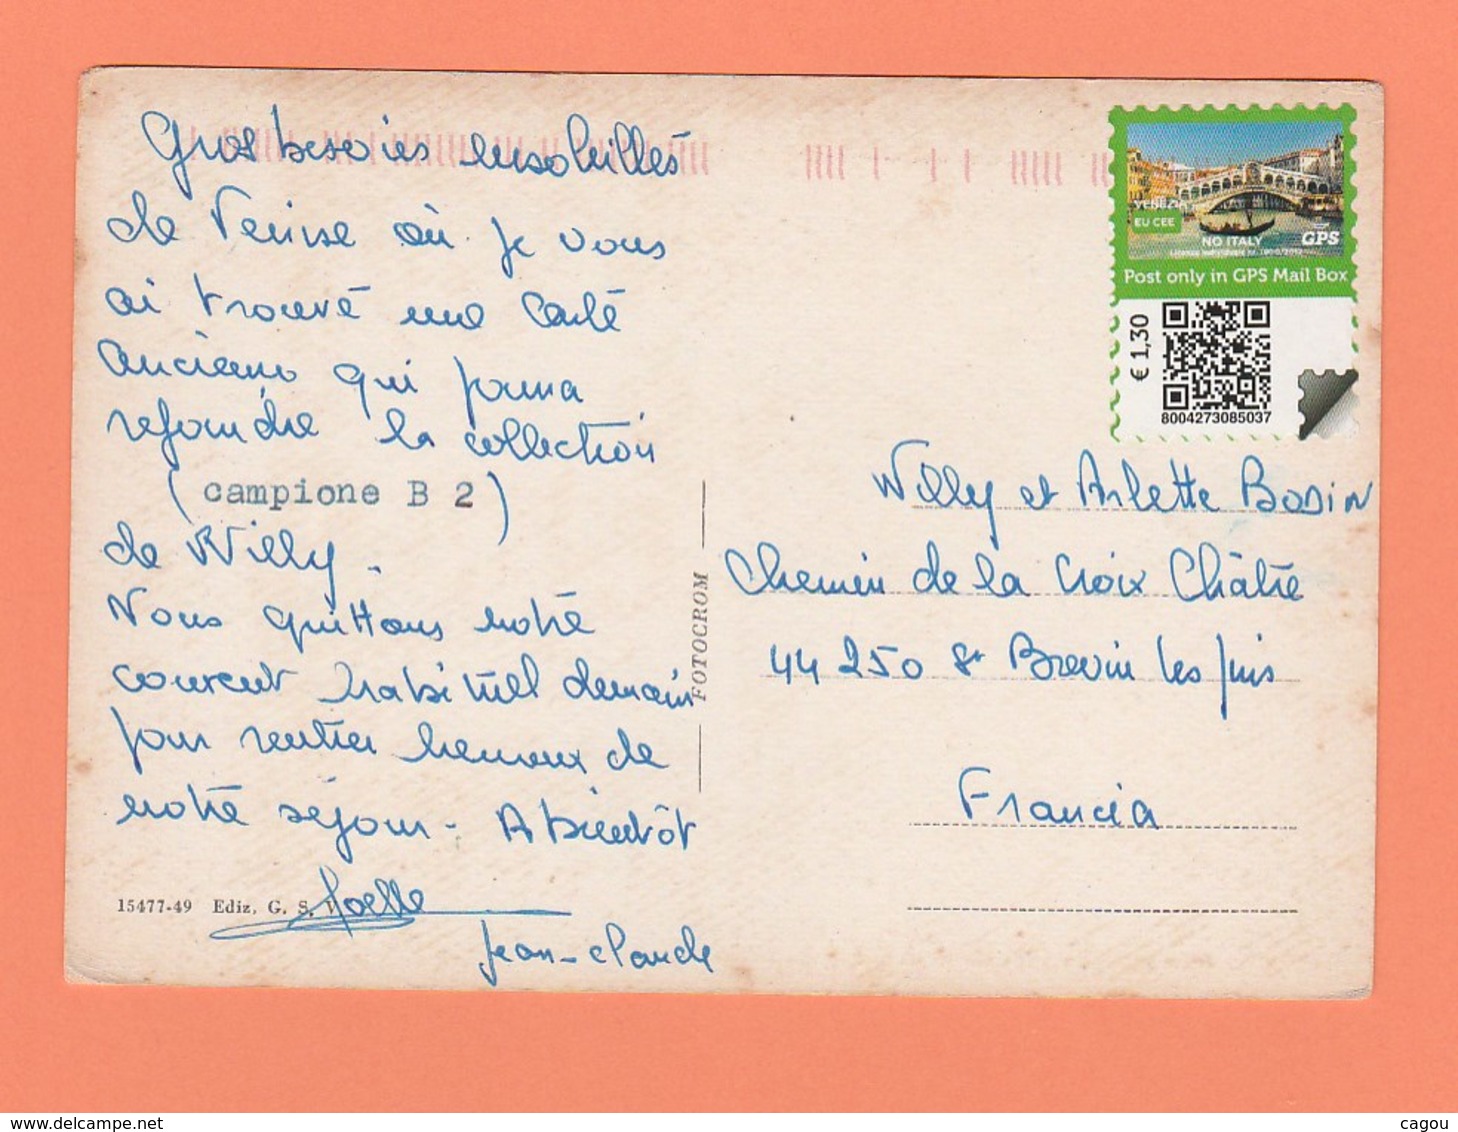 Gros besoins ensoleillés
de Venise où je vous
ai trouvé une carte
ancienne qui pourra
rejoindre la collection
(campione B 2)
de Willy.
Nous quittons notre
couvent habituel demain
pour rentrer heureux de
notre séjour. A bientôt
Joelle
Jean-Claude
15477-49 Ediz. G. S. V.
FOTOCROM
VENEZIA
EU CEE
NO ITALY
GPS
Post only in GPS Mail Box
€ 1,30
8004273085037
Willy et Arlette BODIN
Chemin de la Croix Châtre
44 250 St Brevin les pins
Francia
delcampe.net
cagou